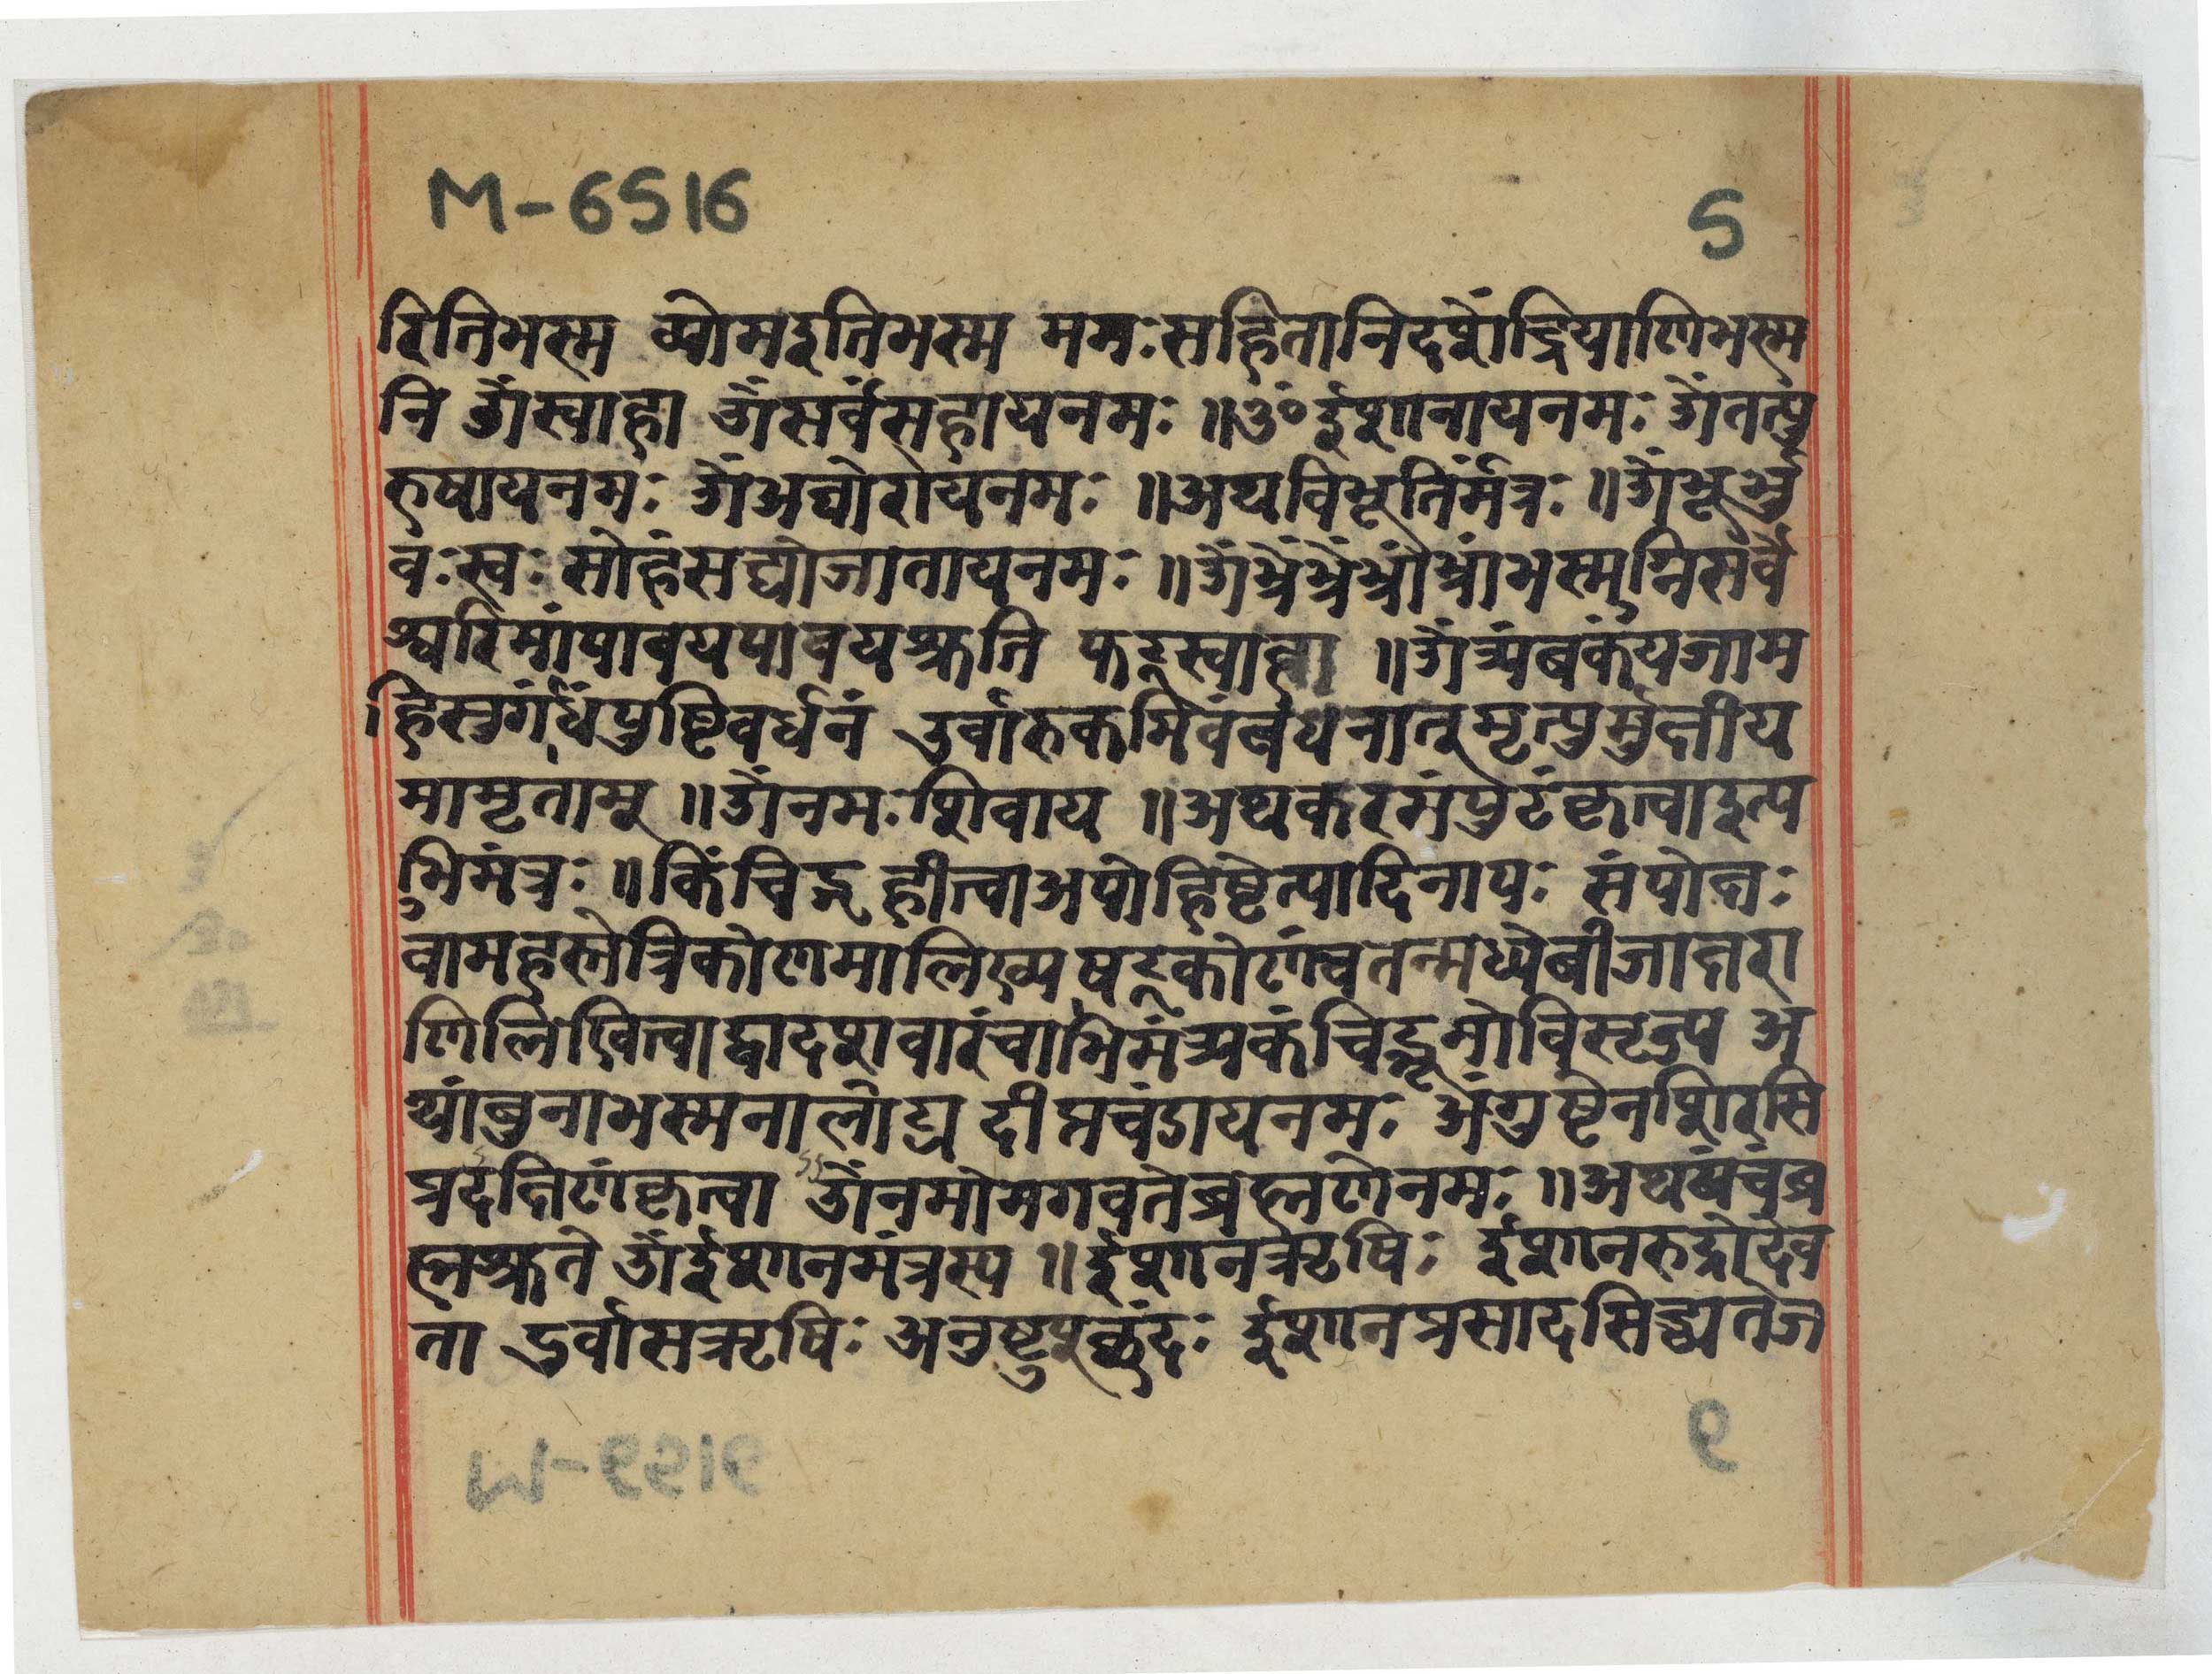 M-6516
5
रितिभस्म व्योमइतिभस्म ममःसहितानिदशेंद्रियाणिभस्म
नि ॐस्वाहा ॐसर्वसहायनमः ॥ॐईशानायनमः ॐतत्पु
रुषायनमः ॐअघोरायनमः ॥अथविभूतिर्मंत्रः ॥ॐभूर्भु
वःस्वः सोहंसद्योजातायनमः ॥ॐभ्रेंभ्रेंभ्रींभ्रांभस्माग्निसर्वे
श्वरिमांपावयपावयऋति फट्स्वाहा ॥ॐत्र्यंबकंयजाम
हिसुगंधिंपुष्टिवर्धनं उर्वारुकमिवंबंधनान्मृत्युर्मुक्षीय
मामृतामू ॥ॐनमःशिवाय ॥अथकरसंपुटंकृत्वाइत्प
भिमंत्रः ॥किंचिद्गृहीत्वाअपोहिष्टेत्यादिनापः संपोक्षः
वामहस्तेत्रिकोणमालिख्यषट्कोणंचतन्मध्येबीजाक्षरा
णिलिखित्वाद्वादशवारंचाभिमंत्र्यकंचिद्भूमोविसृज्य अ
थांबुनाभस्मनालोड्य दीप्तचंडायनमः अंगुष्टेनशिरसि
प्रदक्षिणंकृत्वा ॐनमोभगवतेब्रह्मणेनमः ॥अथपंचब्र
ह्मऋते ॐईशानमंत्रस्य ॥ईशानऋषिः ईशानरुद्रोदेव
ता दुर्वासऋषिः अनुष्टुप्छंदः ईशानप्रसादसिद्ध्यतेज